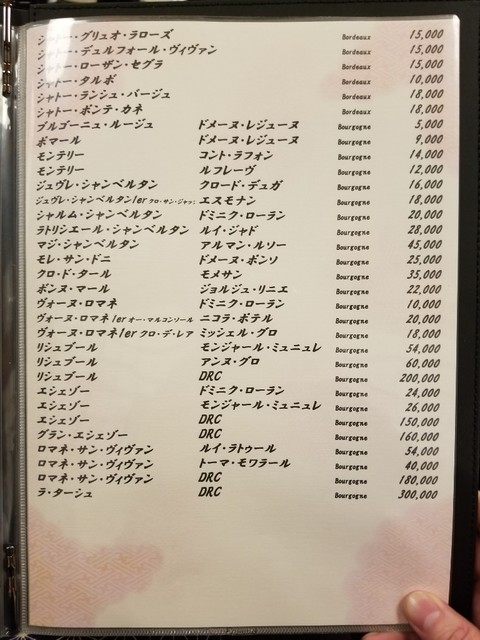 シャトー・グリュオ・ラローズ Bordeaux 15,000
シャトー・デュルフォール・ヴィヴァン Bordeaux 15,000
シャトー・ローザン・セグラ Bordeaux 15,000
シャトー・タルボ Bordeaux 10,000
シャトー・ランシュ・バージュ Bordeaux 18,000
シャトー・ポンテ・カネ Bordeaux 18,000
ブルゴーニュ・ルージュ ドメーヌ・レジューヌ Bourgogne 5,000
ポマール ドメーヌ・レジューヌ Bourgogne 9,000
モンテリー コント・ラフォン Bourgogne 14,000
モンテリー ルフレーヴ Bourgogne 12,000
ジュヴレ・シャンベルタン クロード・デュガ Bourgogne 16,000
ジュヴレ・シャンベルタン1er クロ・サン・ジャック エスモナン Bourgogne 18,000
シャルム・シャンベルタン ドミニク・ローラン Bourgogne 20,000
ラトリシエール・シャンベルタン ルイ・ジャド Bourgogne 28,000
マジ・シャンベルタン アルマン・ルソー Bourgogne 45,000
モレ・サン・ドニ ドメーヌ・ポンソ Bourgogne 25,000
クロ・ド・タール モメサン Bourgogne 35,000
ボンヌ・マール ジョルジュ・リニエ Bourgogne 22,000
ヴォーヌ・ロマネ ドミニク・ローラン Bourgogne 10,000
ヴォーヌ・ロマネ 1er オー・マルコンソール ニコラ・ポテル Bourgogne 20,000
ヴォーヌ・ロマネ1er クロ・デ・レア ミッシェル・グロ Bourgogne 18,000
リシュブール モンジャール・ミュニュレ Bourgogne 54,000
リシュブール アンヌ・グロ Bourgogne 60,000
リシュブール DRC Bourgogne 200,000
エシェゾー ドミニク・ローラン Bourgogne 24,000
エシェゾー モンジャール・ミュニュレ Bourgogne 26,000
エシェゾー DRC Bourgogne 150,000
グラン・エシェゾー DRC Bourgogne 160,000
ロマネ・サン・ヴィヴァン ルイ・ラトゥール Bourgogne 54,000
ロマネ・サン・ヴィヴァン トーマ・モワラール Bourgogne 40,000
ロマネ・サン・ヴィヴァン DRC Bourgogne 180,000
ラ・ターシュ DRC Bourgogne 300,000